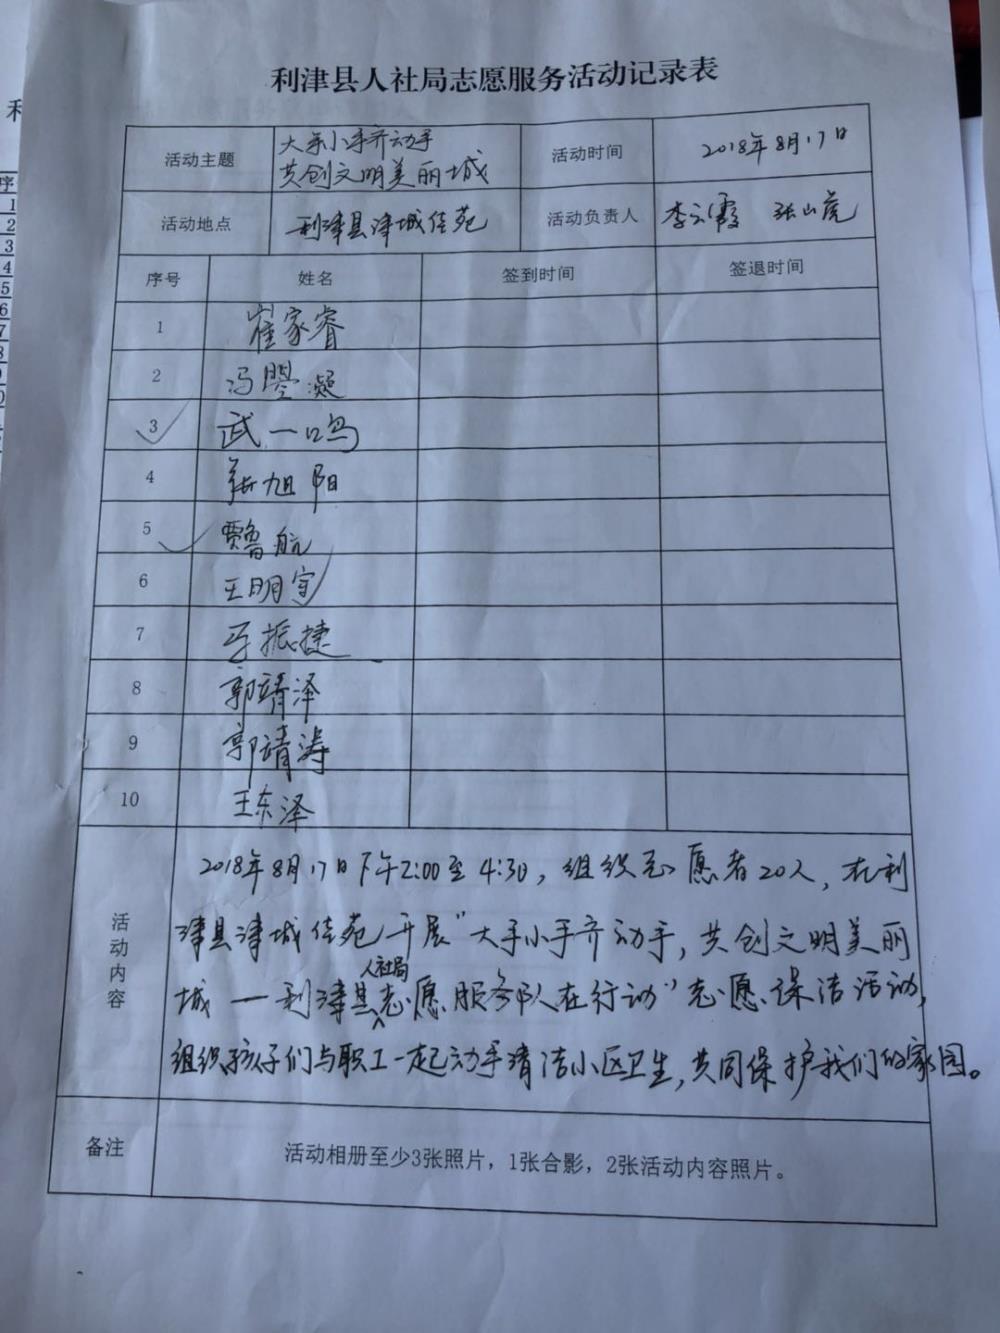 利津县人社局志愿服务活动记录表
活动主题 大手小手齐动手 活动时间 2018年8月17日
共创文明美丽城
活动地点 利津县津城佳苑 活动负责人 李云霞 张山虎
序号 姓名 签到时间 签退时间
1 崔家睿
2 冯 凝
3 武一鸣
4 旭阳
5 贾鲁航
6 王明宇
7 振捷
8 郭靖泽
9 郭靖涛
10 王东泽
活动内容
2018年8月17日下午2:00至4:30,组织志愿者20人,在利
津县津城佳苑开展"大手小手齐动手,共创文明美丽
城—利津县人社局志愿服务队在行动"志愿保洁活动,
组织孩子们与职工一起动手清洁小区卫生,共同保护我们的家园。
备注 活动相册至少3张照片，1张合影，2张活动内容照片。
利
序
1
2
3
4
5
6
7
8